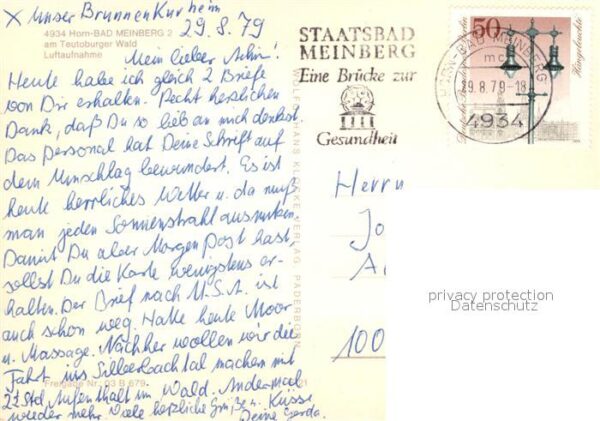 x Unser Brunnen Kurheim
29.8.79
4934 Horn-BAD MEINBERG 2
am Teutoburger Wald
Luftaufnahme
Mein lieber Achim!
Heute habe ich gleich 2 Briefe
von Dir erhalten. Recht herzlichen
Dank, daß Du so lieb an mich denkst.
Das Personal hat Deine Schrift auf
dem Umschlag bewundert. Es ist
heute herrliches Wetter u. da muß
man jeden Sonnenstrahl ausnutzen.
Damit Du aber Morgen Post hast,
sollst Du die Karte wenigstens er-
halten. Der Brief nach U.S.A. ist
auch schon weg. Hatte heute Moor
u. Massage. Nachher wollen wir die
Fahrt ins Silberbachtal machen mit
2½ Std Aufenthalt im Wald. Andermal
wieder mehr Viele herzliche Grüße u. Küsse
Deine Gerda.
Freigabe Nr. 03 B 679
21
KLOCKE VERLAG, PADERBORN
STAATSBAD
MEINBERG
Eine Brücke zur
Gesundheit
50
Deutsche Bundespost
Hängeleuchte
HORN-BAD MEINBERG
mc
29.8.79-18
4934
Herrn
Jo
A
100
privacy protection
Datenschutz